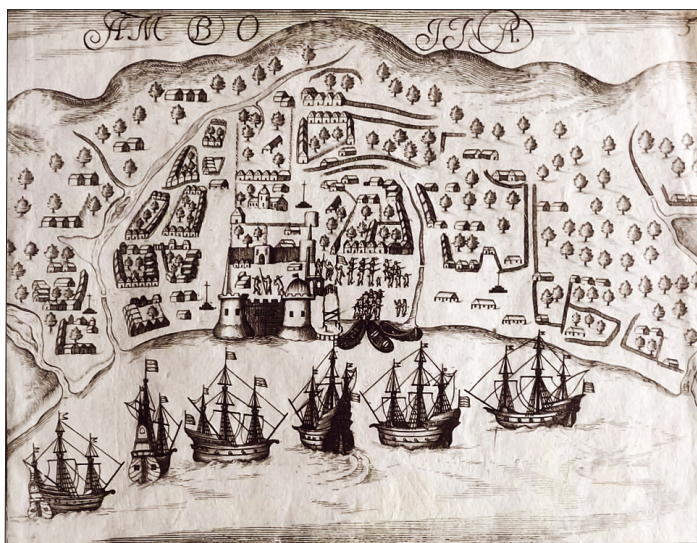 AMBO INA. 5